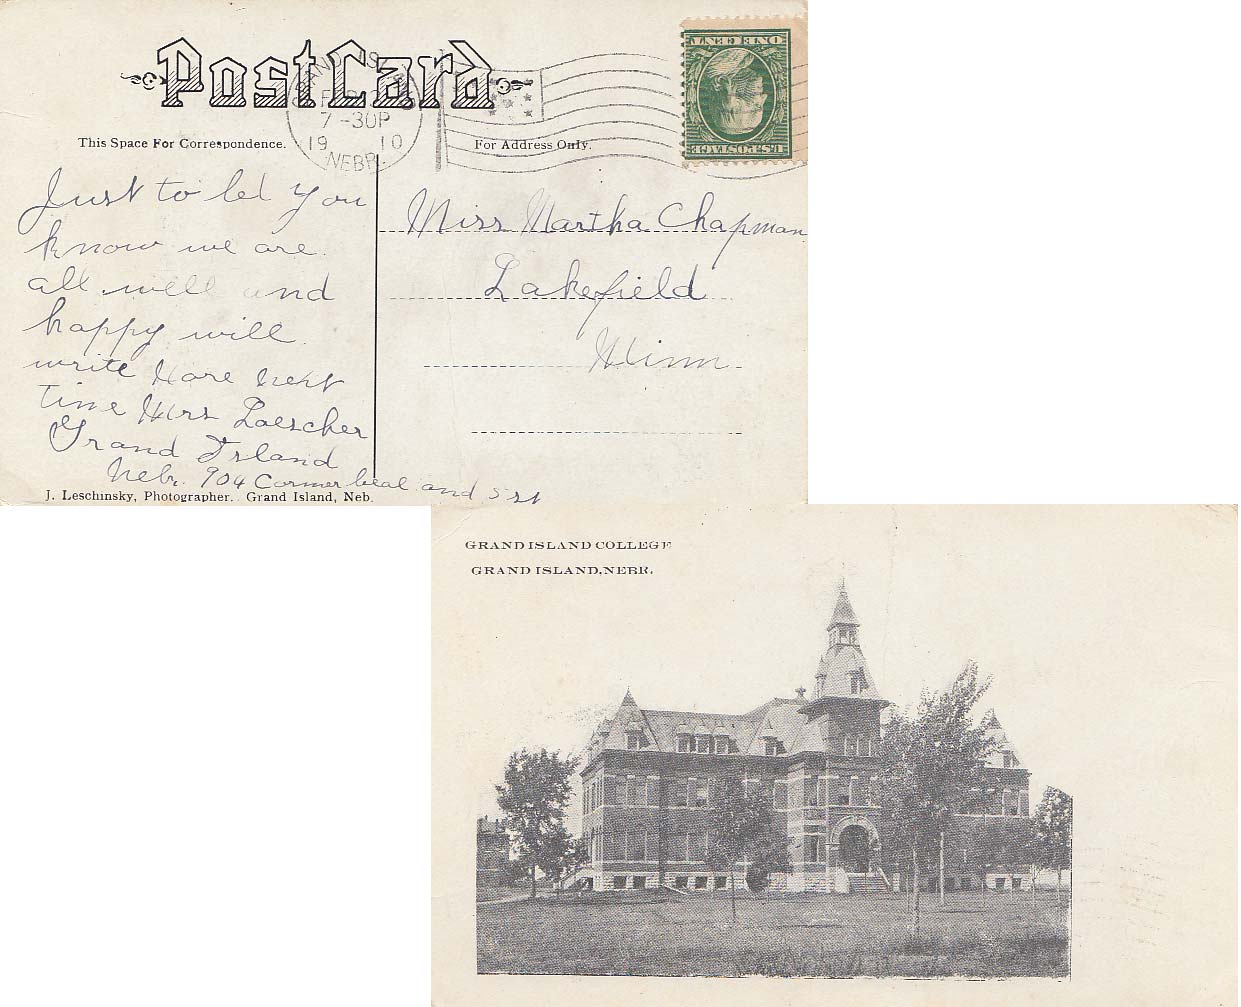 PostCard
GRAND IS
7-30P
19 10
NEBR.
This Space For Correspondence.
For Address Only.
ONE CENT
U.S. POSTAGE
Just to let you
know we are
all well and
happy will
write More next
time Mrs Loescher
Grand Island
Nebr. 904 Corner and
J. Leschinsky, Photographer. Grand Island, Neb.
Miss Martha Chapman
Lakefield
Minn.
GRAND ISLAND COLLEGE
GRAND ISLAND, NEBR.